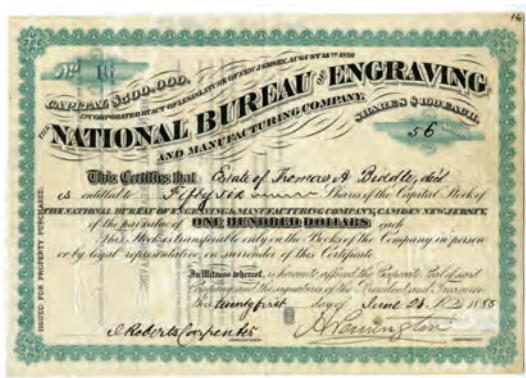 16
No 16
CAPITAL $300,000.
INCORPORATED BY ACT OF LEGISLATURE OF NEW JERSEY, AUGUST 18TH 1870
THE NATIONAL BUREAU OF ENGRAVING
AND MANUFACTURING COMPANY.
SHARES $100 EACH.
56
This Certifies that Estate of Thomas A Biddle, dec'd
is entitled to Fifty six Shares of the Capital Stock of
THE NATIONAL BUREAU OF ENGRAVING & MANUFACTURING COMPANY, CAMDEN NEW JERSEY,
of the par value of ONE HUNDRED DOLLARS each
This Stock is transferable only on the Books of the Company in person
or by legal representative on surrender of this Certificate
In Witness whereof, is hereunto affixed the Corporate Seal of said
Company and the signatures of the President and Treasurer
this twenty first day of June
I Roberts Carpenter
ISSUED FOR PROPERTY PURCHASED.